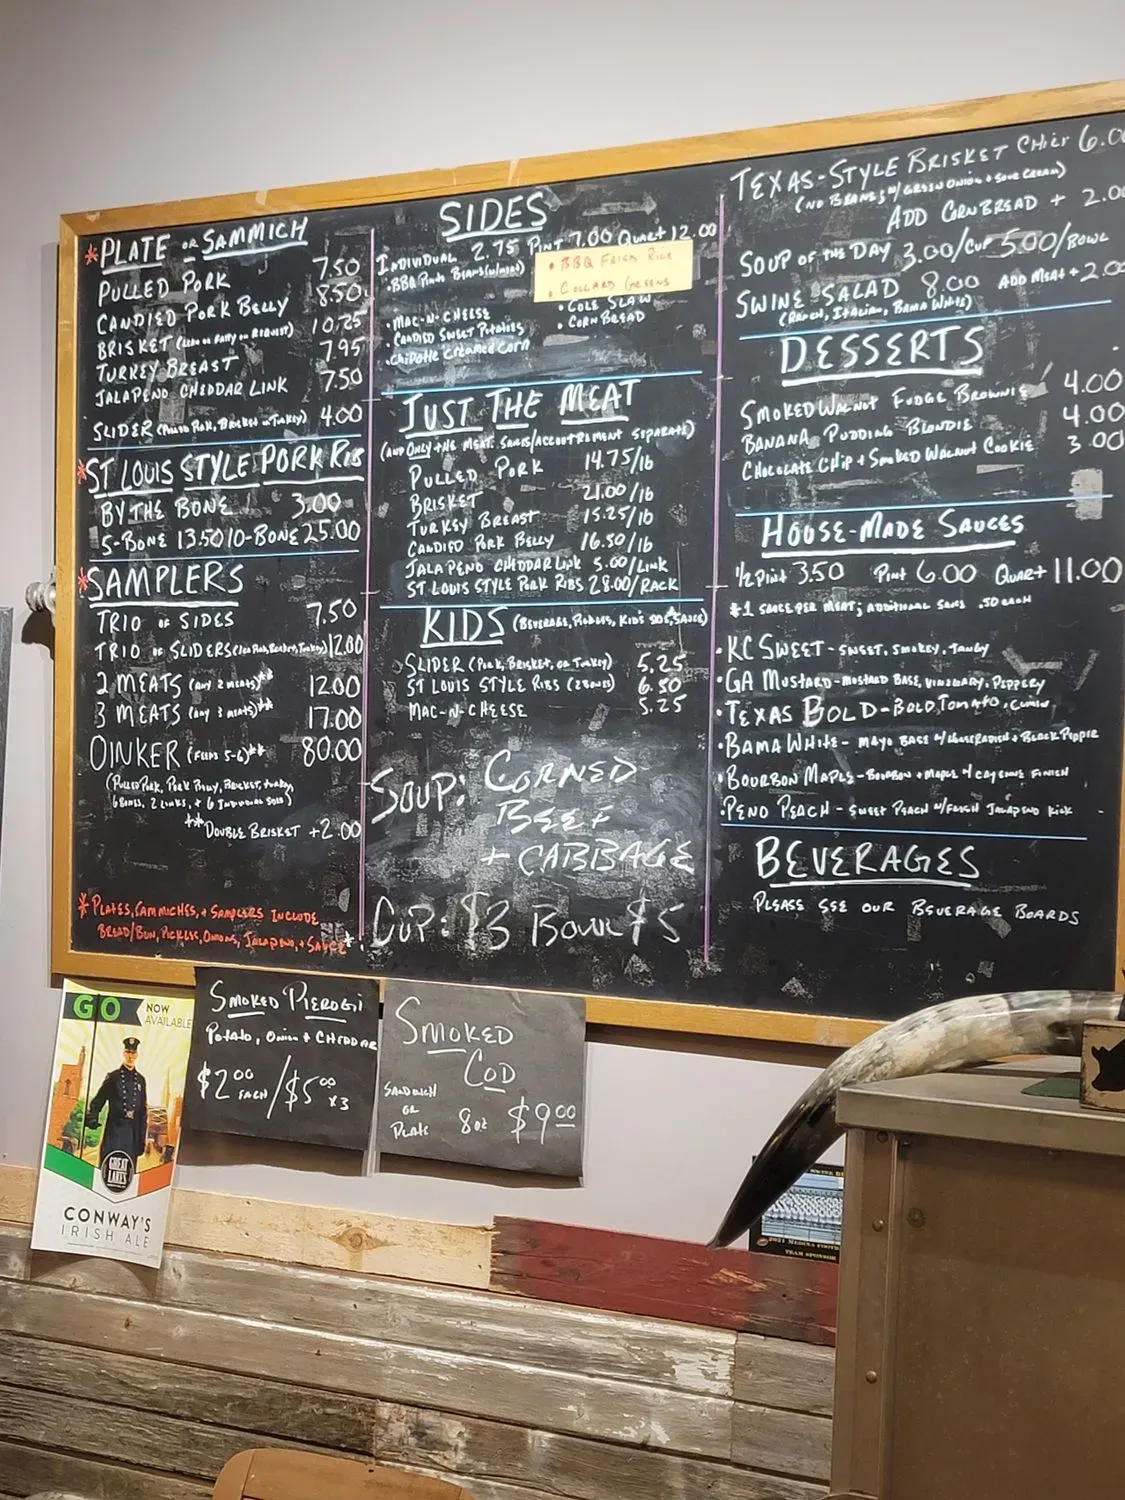 *PLATE OR SAMMICH
PULLED PORK 7.50
CANDIED PORK BELLY 8.50
BRISKET (LEAN OR FATTY ON REQUEST) 10.25
TURKEY BREAST 7.95
JALAPENO CHEDDAR LINK 7.50
SLIDER (PULLED PORK, BRISKET OR TURKEY) 4.00
*ST LOUIS STYLE PORK RIBS
BY THE BONE 3.00
5-BONE 13.50 10-BONE 25.00
*SAMPLERS
TRIO OF SIDES 7.50
TRIO OF SLIDERS 12.00
2 MEATS (ANY 2 MEATS)** 12.00
3 MEATS (ANY 3 MEATS)** 17.00
OINKER (FEEDS 5-6)** 80.00
(PULLED PORK, PORK BELLY, BRISKET, TURKEY,
6 BONES, 2 LINKS, + 6 INDIVIDUAL SIDES)
**DOUBLE BRISKET +2.00
*PLATES, SAMMICHES, + SAMPLERS INCLUDE
BREAD/BUN, PICKLES, ONIONS, JALAPENO, + SAUCE*
SIDES
INDIVIDUAL 2.75 PINT 7.00 QUART 12.00
•BBQ PINTO BEANS (W/MEAT)
•MAC-N-CHEESE
•CANDIED SWEET POTATOES
•CHIPOTLE CREAMED CORN
•BBQ FRIED RICE
•COLLARD GREENS
•COLE SLAW
•CORNBREAD
JUST THE MEAT
(AND ONLY THE MEAT. SAUCES/ACCOUTREMENT SEPARATE)
PULLED PORK 14.75/lb
BRISKET 21.00/lb
TURKEY BREAST 15.25/lb
CANDIED PORK BELLY 16.50/lb
JALAPENO CHEDDAR LINK 5.00/LINK
ST LOUIS STYLE PORK RIBS 28.00/RACK
KIDS (BEVERAGE, PICKLES, KID'S SIDE, SAUCE)
SLIDER (PORK, BRISKET, OR TURKEY) 5.25
ST LOUIS STYLE RIBS (2 BONES) 6.50
MAC-N-CHEESE 5.25
SOUP: CORNED
BEEF
+ CABBAGE
CUP: $3 BOWL $5
TEXAS-STYLE BRISKET CHILI 6.00
(NO BEANS; W/ GREEN ONION + SOUR CREAM)
ADD CORNBREAD + 2.00
SOUP OF THE DAY 3.00/CUP 5.00/BOWL
SWINE SALAD 8.00 ADD MEAT + 2.00
(RANCH, ITALIAN, BAMA WHITE)
DESSERTS
SMOKED WALNUT FUDGE BROWNIE 4.00
BANANA PUDDING BLONDIE 4.00
CHOCOLATE CHIP + SMOKED WALNUT COOKIE 3.00
HOUSE-MADE SAUCES
1/2 PINT 3.50 PINT 6.00 QUART 11.00
*1 SAUCE PER MEAT; ADDITIONAL SAUCE .50 EACH
•KC SWEET - SWEET, SMOKEY, TANGY
•GA MUSTARD - MUSTARD BASE, VINEGARY, PEPPERY
•TEXAS BOLD - BOLD, TOMATO, CUMIN
•BAMA WHITE - MAYO BASE W/ HORSERADISH + BLACK PEPPER
•BOURBON MAPLE - BOURBON + MAPLE W/ CAYENNE FINISH
•PENO PEACH - SWEET PEACH W/ FRESH JALAPENO KICK
BEVERAGES
PLEASE SEE OUR BEVERAGE BOARDS
GO NOW
AVAILABLE
GREAT
LAKES
CONWAY'S
IRISH ALE
SMOKED PIEROGI
POTATO, ONION + CHEDDAR
$2.00 EACH / $5.00 x3
SMOKED
COD
SANDWICH
OR
PLATE 8oz $9.00
2021 MEDINA FOOTB
TEAM SPONSOR